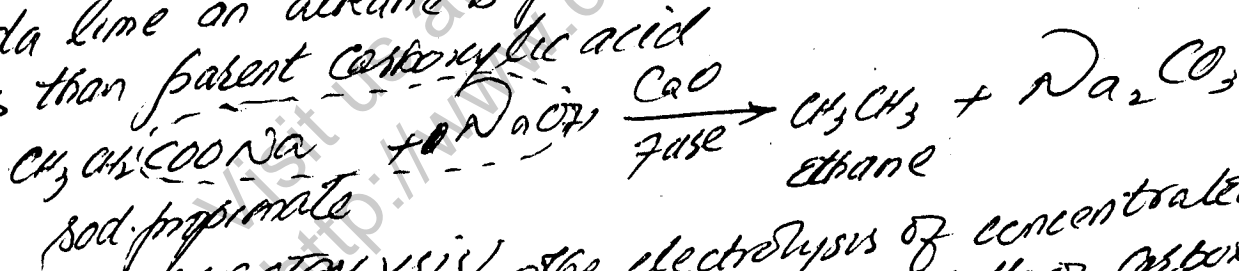 da lime an alkane is
than parent carboxylic acid
CH₃CH₂COONa + NaOH CaO Fuse → CH₃CH₃ + Na₂CO₃
sod. propionate ethane
the electrolysis of concentrate
Visit us a
http://www.